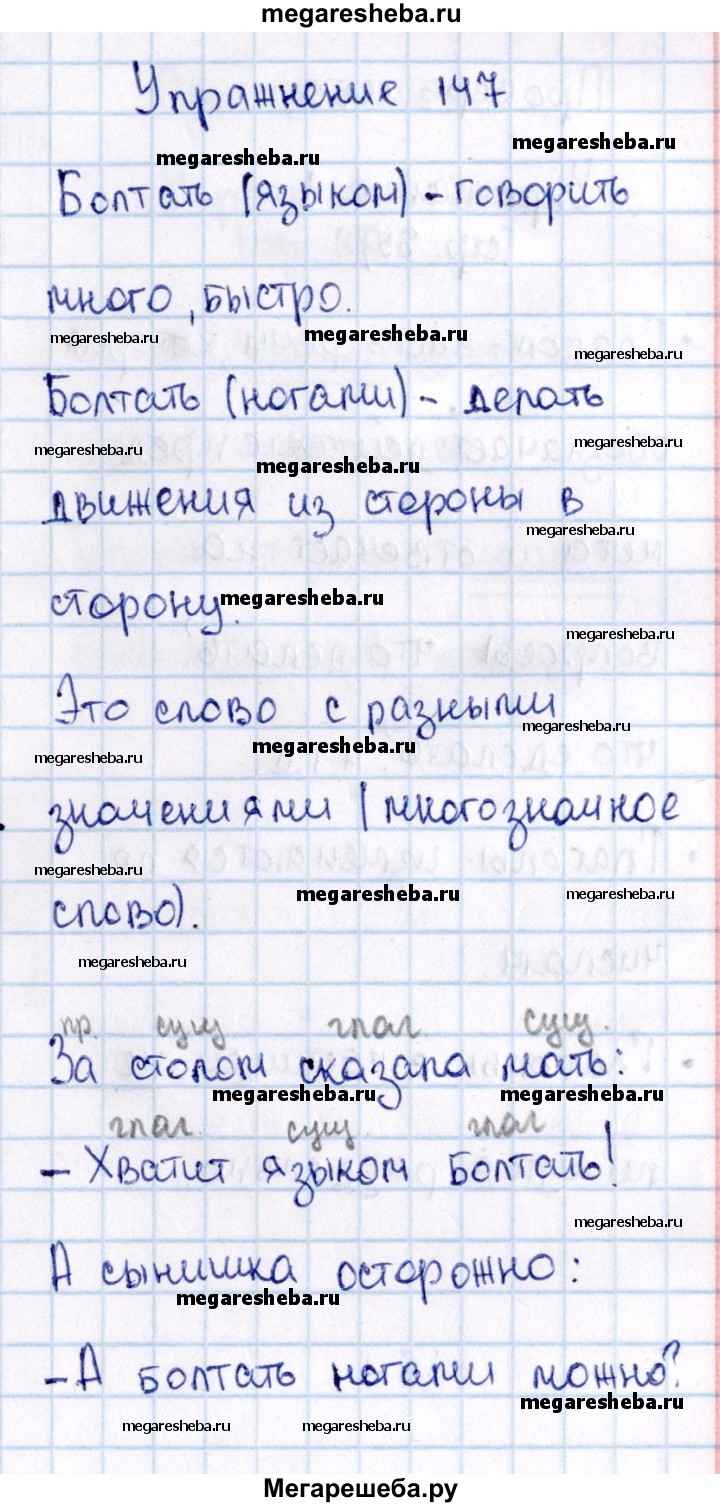 megaresheba.ru
Упражнение 147
megaresheba.ru
megaresheba.ru
Болтать (языком) - говорить
много, быстро.
megaresheba.ru
megaresheba.ru
megaresheba.ru
Болтать (ногами) - делать
megaresheba.ru
megaresheba.ru
megaresheba.ru
движения из стороны в
megaresheba.ru
сторону.
megaresheba.ru
megaresheba.ru
Это слово с разными
megaresheba.ru
megaresheba.ru
megaresheba.ru
значениями (многозначное
megaresheba.ru
megaresheba.ru
megaresheba.ru
слово).
megaresheba.ru
пр. сущ глаг. сущ.
За столом сказала мать:
megaresheba.ru
megaresheba.ru
глаг. сущ глаг
- Хватит языком болтать!
megaresheba.ru
А сынишка осторожно:
megaresheba.ru
- А болтать ногами можно?
megaresheba.ru
megaresheba.ru
megaresheba.ru
Мегарешеба.ру